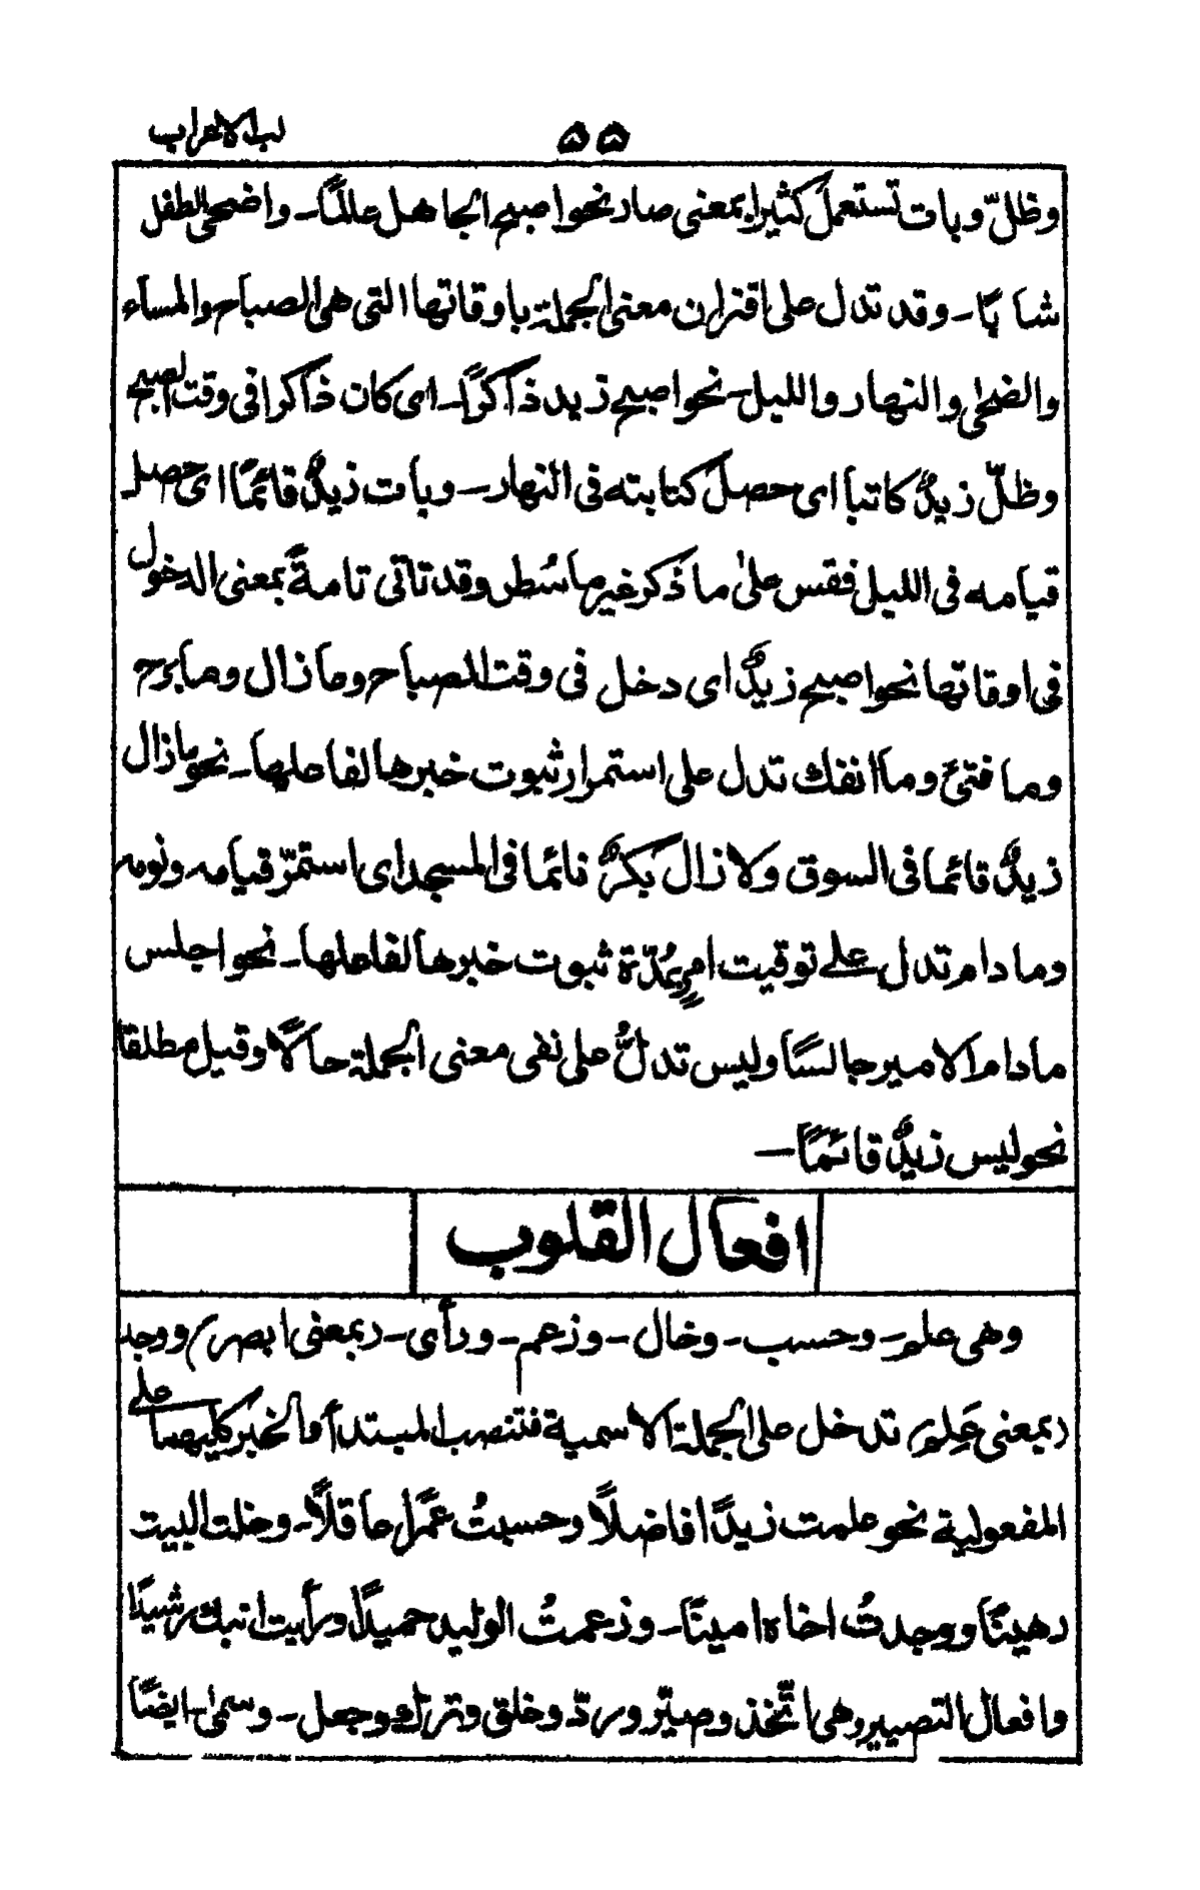 لب الاعراب
۵۵
وظلّ وبات تستعمل كثيرا بمعنى صار نحو اصبح الجاهل عالمًا۔ واضحى الطفل
شابًا۔ وقد تدل على اقتران معنى الجملة باوقاتها التى هى الصباح والمساء
والضحٰى والنهار والليل۔ نحو اصبح زيد ذاكرًا۔ اى كان ذاكرا فى وقت الصبح
وظلّ زيدٌ كاتبا اى حصل كتابته فى النهار۔ وبات زيدٌ قائمًا اى حصل
قيامه فى الليل فقس علىٰ ما ذكر غير ما سُطر وقد تاتى تامةً بمعنى الدخول
فى اوقاتها نحو اصبح زيدٌ اى دخل فى وقت الصباح وما زال وما برح
وما فتئ وما انفك تدل على استمرار ثبوت خبرها لفاعلها۔ نحو ما زال
زيدٌ قائما فى السوق ولا زال بكرٌ نائما فى المسجد اى استمرّ قيامه ونومه
وما دام تدل على توقيت امرٍ بمُدّة ثبوت خبرها لفاعلها۔ نحو اجلس
ما دام الامير جالسًا وليس تدلُّ على نفى معنى الجملة حالًا وقيل مطلقا
نحو ليس زيدٌ قائمًا۔
افعال القلوب
وهى علم۔ وحسب۔ وخال۔ وزعم۔ ورأى۔ (بمعنى ابصر) ووجد
(بمعنى عَلِم) تدخل على الجملة الاسمية فتنصب المبتدأ والخبر كليهما على
المفعولية نحو علمت زيدًا فاضلًا وحسبتُ عمرًا عاقلًا۔ وخلت البيت
رهينًا ووجدتُ اخاه امينًا۔ وزعمتُ الوليد حميدًا ورأيت ابنك رشيدًا
وافعال التصيير وهى اتّخذ وصيّر وردّ وخلق وترك وجعل۔ وسمى ايضًا